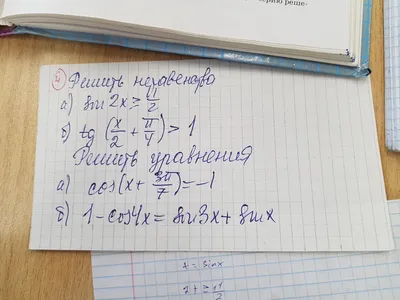 рию реше-
2) Решить неравенства
а) sin 2x ≥ π/2
б) tg (x/2 + π/4) > 1
Решить уравнения
а) cos(x + 3π/7) = -1
б) 1 - cos4x = sin3x + sinx
t = sinx